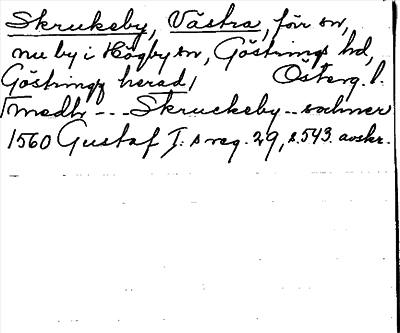 Skrukeby, Västra, förr sn,
nu by i Högby sn, Göstrings hd,
Göstrings herad, Österg. l.
medh --- Skruckeby -- sochner
1560 Gustaf I. s reg. 29, s. 543. avskr.